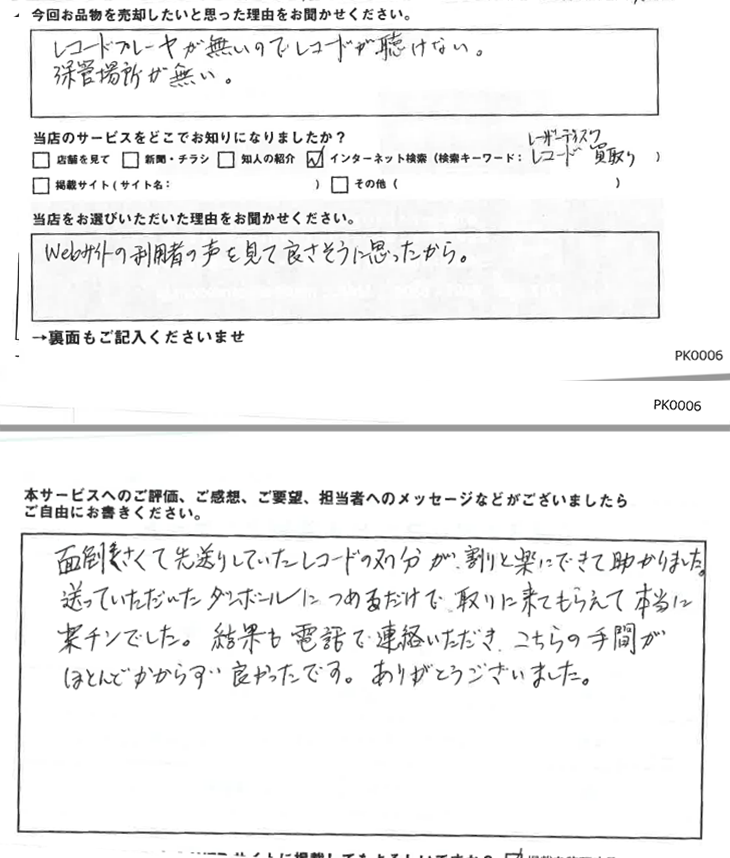 今回お品物を売却したいと思った理由をお聞かせください。
レコードプレーヤが無いのでレコードが聴けない。
保管場所が無い。
当店のサービスをどこでお知りになりましたか？
レーザーディスク
□ 店舗を見て □ 新聞・チラシ □ 知人の紹介 ☑ インターネット検索（検索キーワード： レコード 買取り ）
□ 掲載サイト（サイト名： ） □ その他（ ）
当店をお選びいただいた理由をお聞かせください。
Webサイトの利用者の声を見て良さそうに思ったから。
→裏面もご記入くださいませ
PK0006
PK0006
本サービスへのご評価、ご感想、ご要望、担当者へのメッセージなどがございましたら
ご自由にお書きください。
面倒くさくて先送りしていたレコードの処分が、割りと楽にできて助かりました。
送っていただいたダンボールにつめるだけで、取りに来てもらえて本当に
楽チンでした。結果も電話で連絡いただき、こちらの手間が
ほとんどかからず良かったです。ありがとうございました。